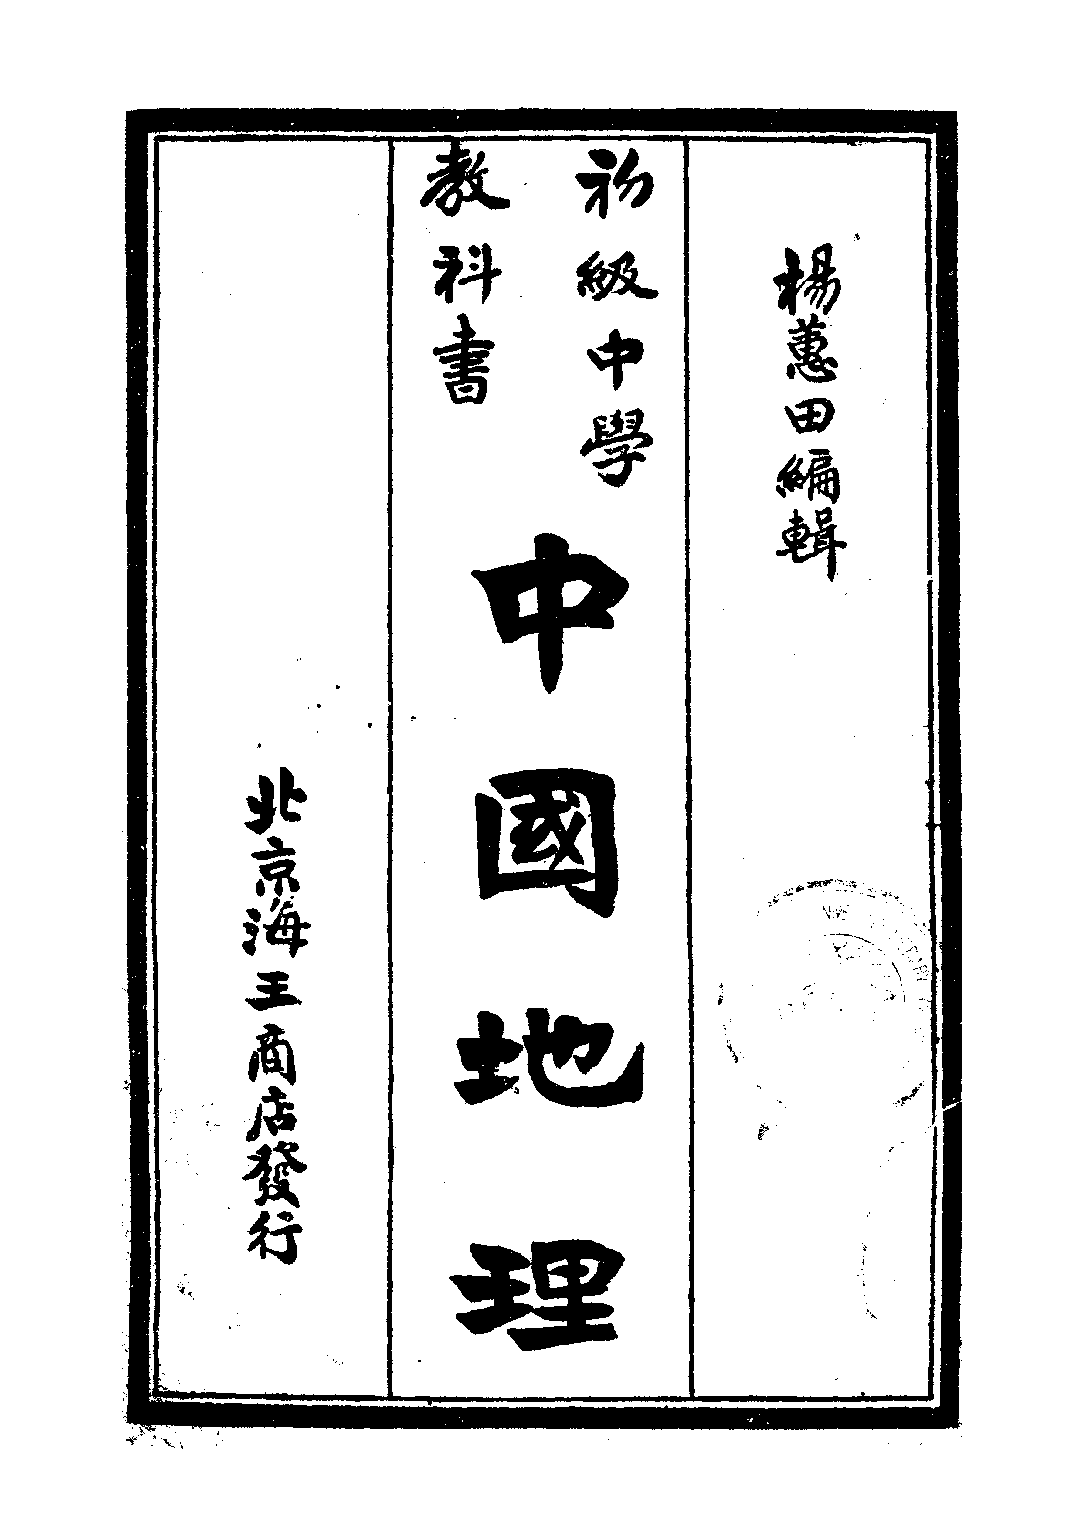 楊蕙田編輯
初級中學
教科書
中國地理
北京海王商店發行